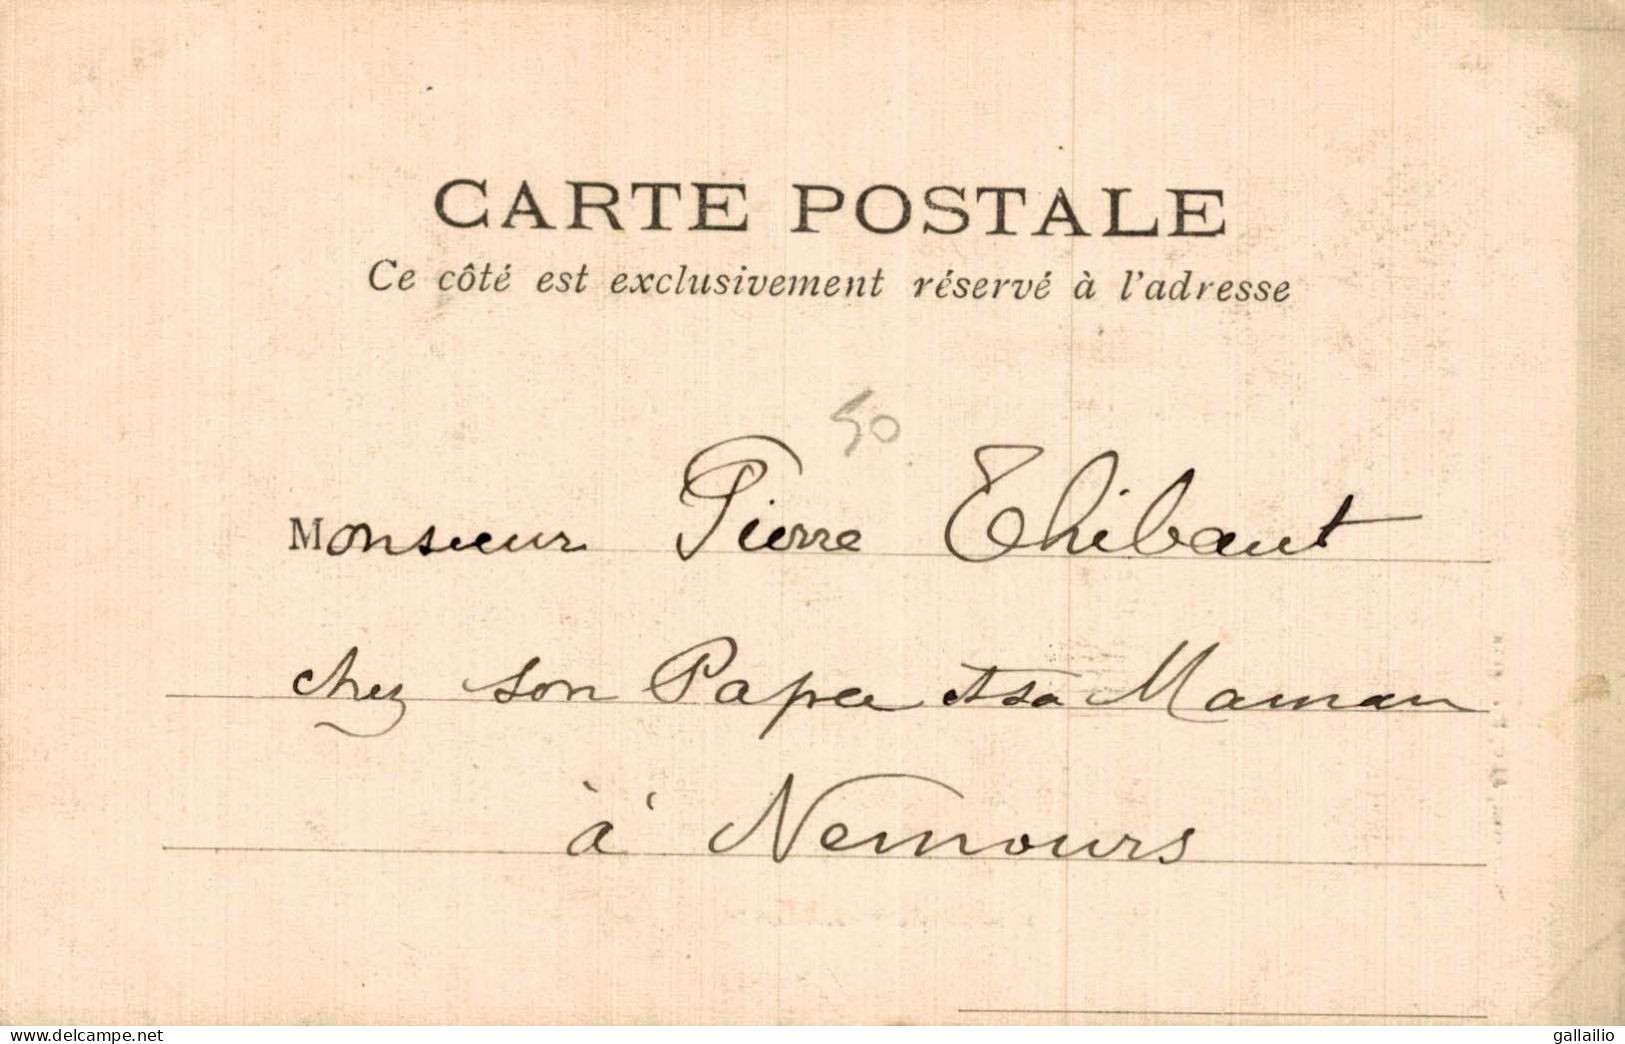 CARTE POSTALE
Ce côté est exclusivement réservé à l'adresse
50
Monsieur Pierre Thibaut
chez son Papa et sa Maman
à Nemours
www.delcampe.net
gallailio